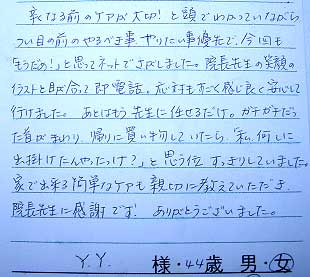 辛くなる前のケアが大切！と頭でわかっていながら
つい目の前のやるべき事、やりたい事優先で、今回も
「もうだめ！」と思ってネットでさがしました。院長先生の笑顔の
イラストと目が合って即電話。応対も亦く感じ良く安心して
行けました。あとはもう先生に任せるだけ。ガチガチだっ
た首がまわり、帰りに買い物していたら、「私、何しに
出掛けたんやったっけ？」と思う位すっきりしていました。
家で出来る簡単なケアも親切に教えていただき、
院長先生に感謝です！ ありがとうございました。
Y.Y. 様・44歳 男・女